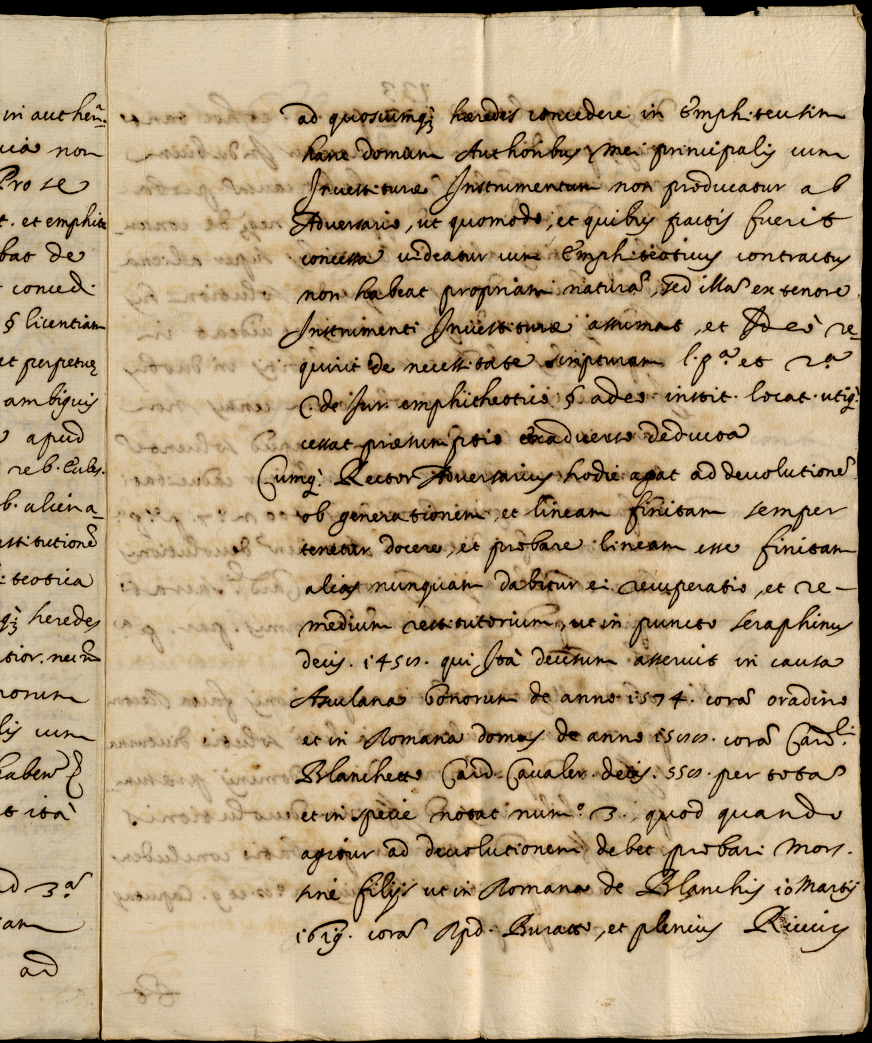 in authen.
non
Pro se
t. et emphit
bat de
concedi
§ licentiam
et perpetuę
ambiguis
apud
reb. Eccles.
b. aliena_
nstitutionẽ
teotica
heredes
norum
lis cum
habent
t ità
ad 3ª
iam
ad
ad quoscumq; hæredes concedere in Emphiteutim
hanc domum Authoribus mei principalis cum
Investituræ Instrumentum non producatur ab
Adversario, ut quomodo, et quibus pactis fuerit
concessa videatur cum Emphiteoticus contractus
non habeat propriam naturã, sed illã ex tenore
Instrumenti Investituræ assumat, et Ideò re_
quirit de necessitate scripturam l. pª et 2ª
C. de Jur. emphitheotico § adeo instit. locat. utiq;
cessat præsumptio ex adverso deducta
Cumq; Rector Adversarius hodie agat ad devolutionẽ
ob generationem, et lineam finitam semper
tenetur docere, et probare lineam esse finitam
alias nunquam dabitur ei recuperatio, et re_
medium restitutorium, ut in puncto Seraphinus
decis. qui Ità decisum asseruit in causa
Asculana bonorum de anno 1574. corã oradino
et in Romana domus de anno corã Card.li
Blanchetto Card. Cavaler. decis. 550. per totã
et in specie notat num.º 3., quod quando
agitur ad devolutionem debet probari mors
sine filijs ut in Romana de Blanchis 10 Martij
1619. corã Rpd. Buratto, et plenius Riccius